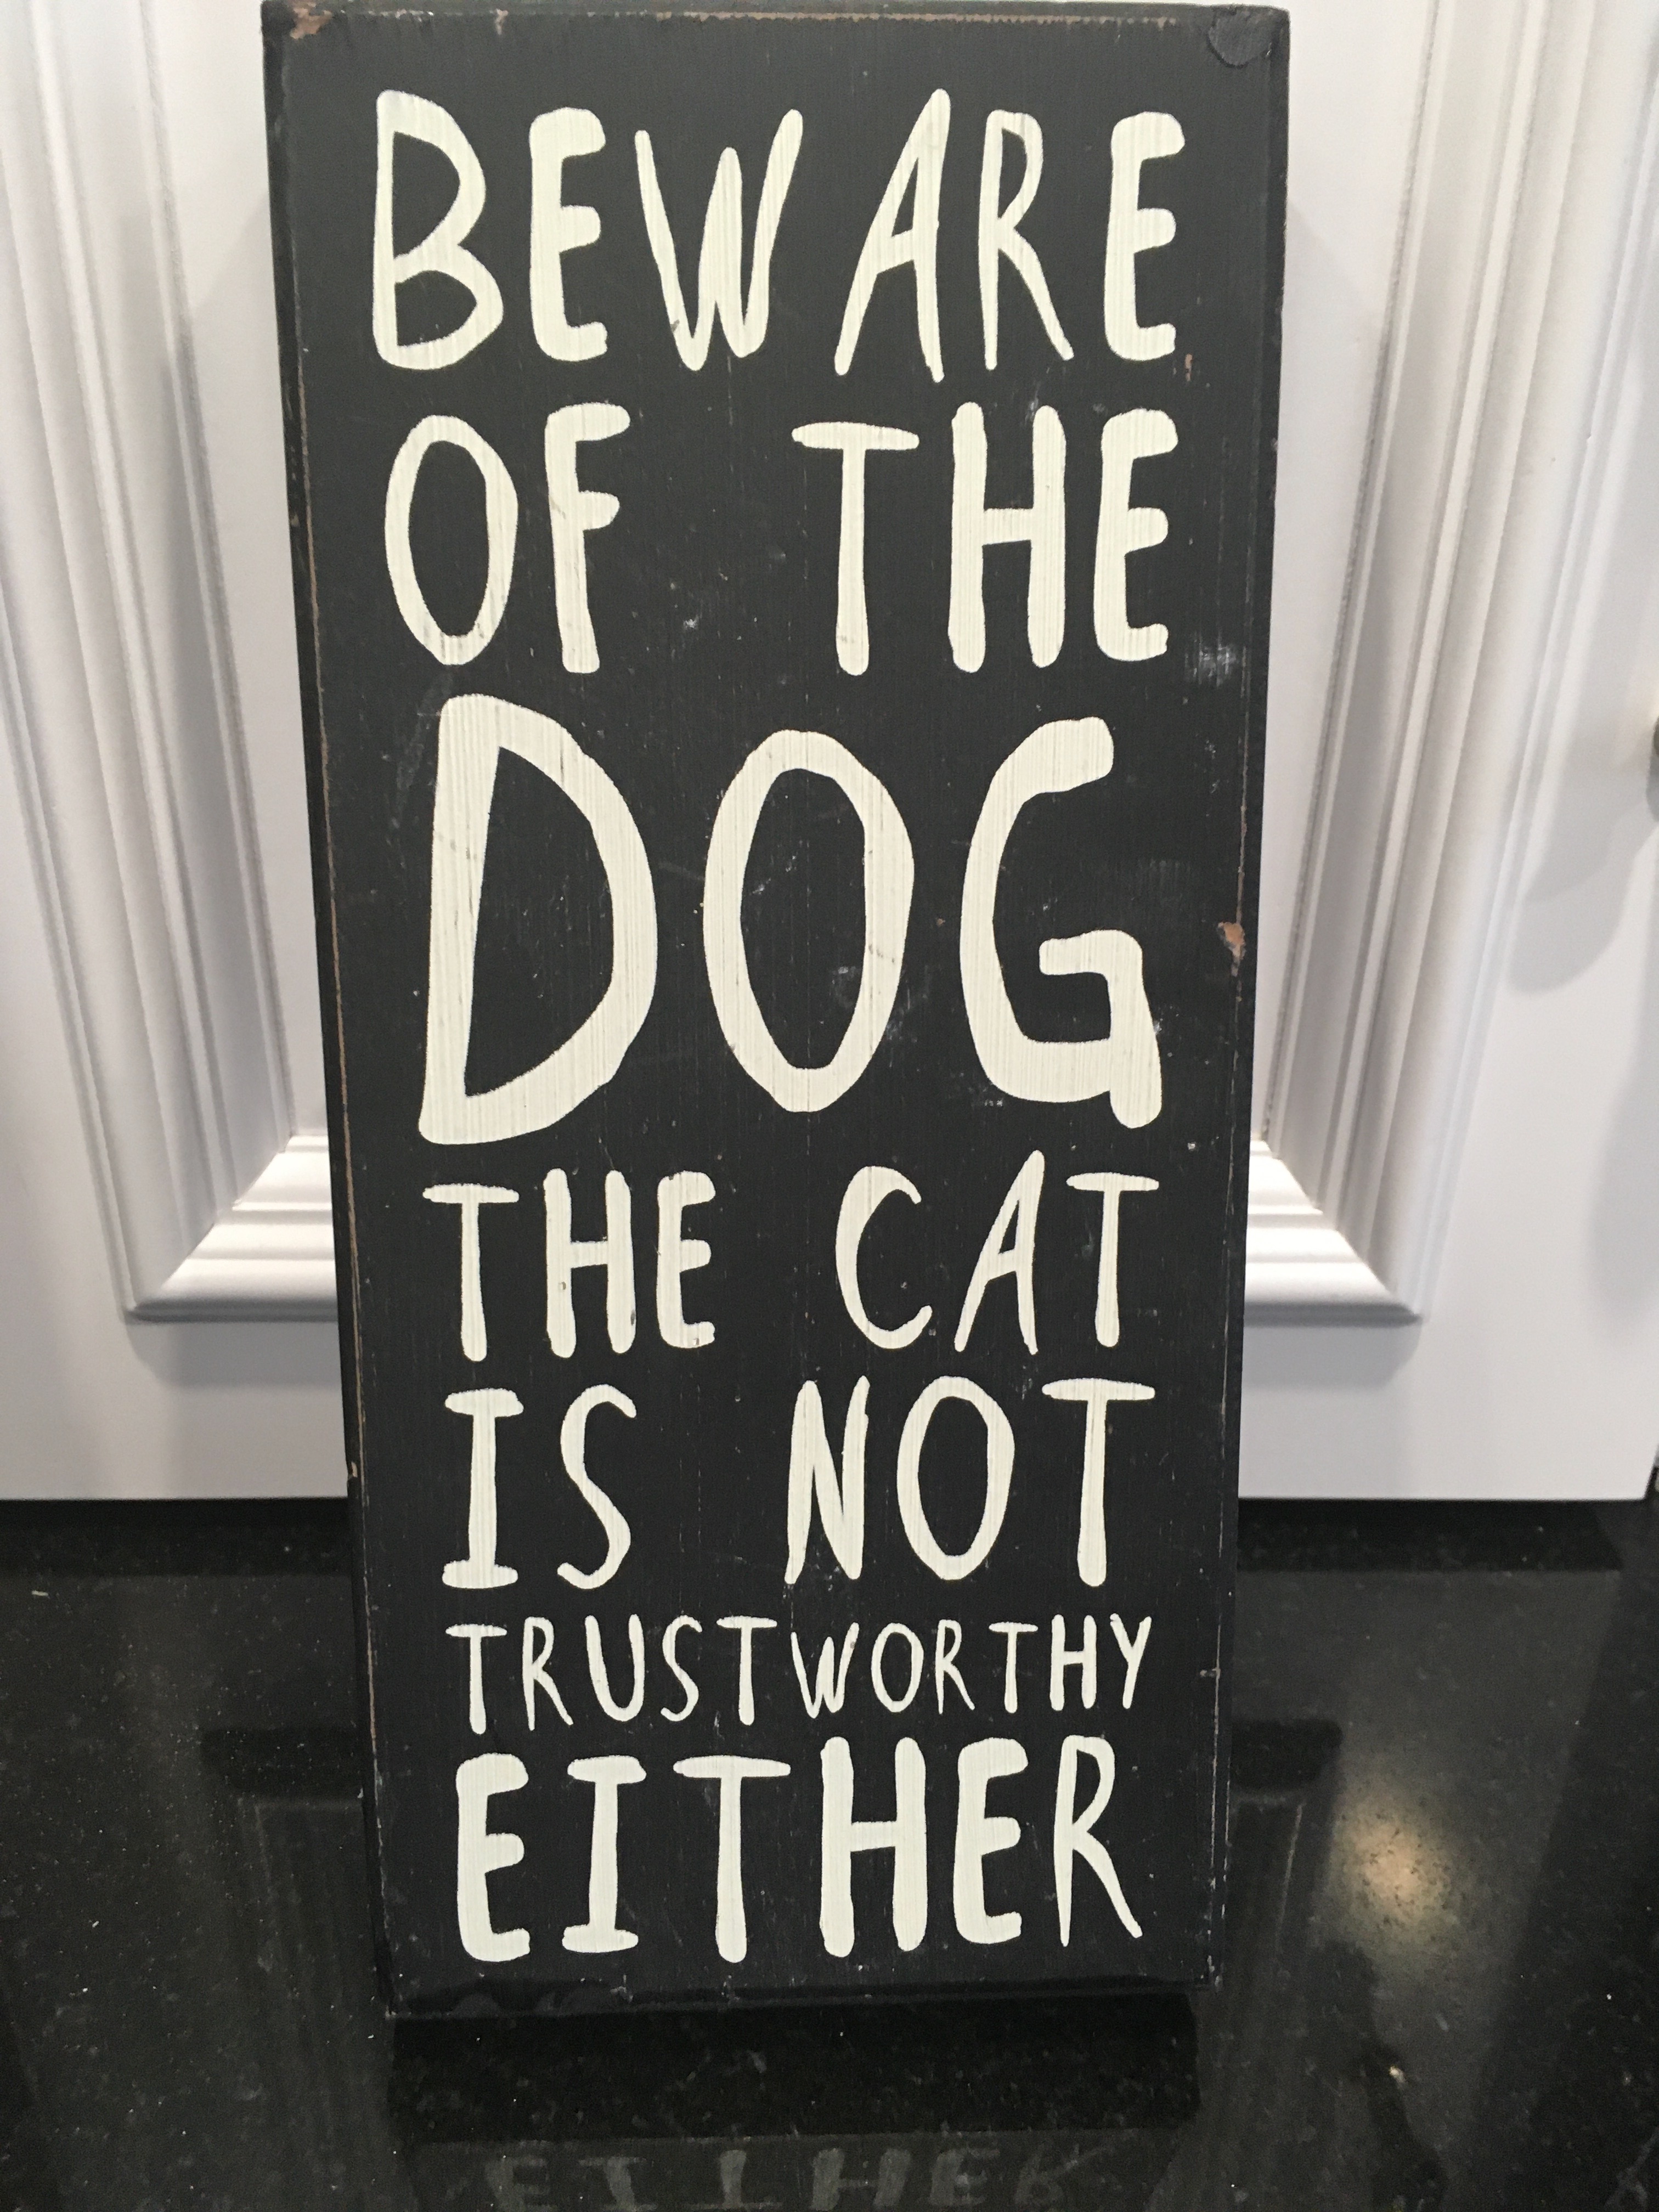 BEWARE
OF THE
DOG
THE CAT
IS NOT
TRUSTWORTHY
EITHER